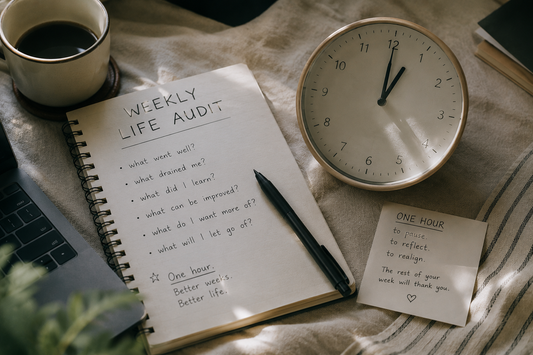 WEEKLY
LIFE AUDIT
• what went well?
• what drained me?
• what did I learn?
• what can be improved?
• what do I want more of?
• what will I let go of?
☆ One hour.
Better weeks.
Better life.
10 11 12 1 2 3 4 5 6 7 8 9
ONE HOUR
to pause.
to reflect.
to realign.
The rest of your
week will thank you.
♡